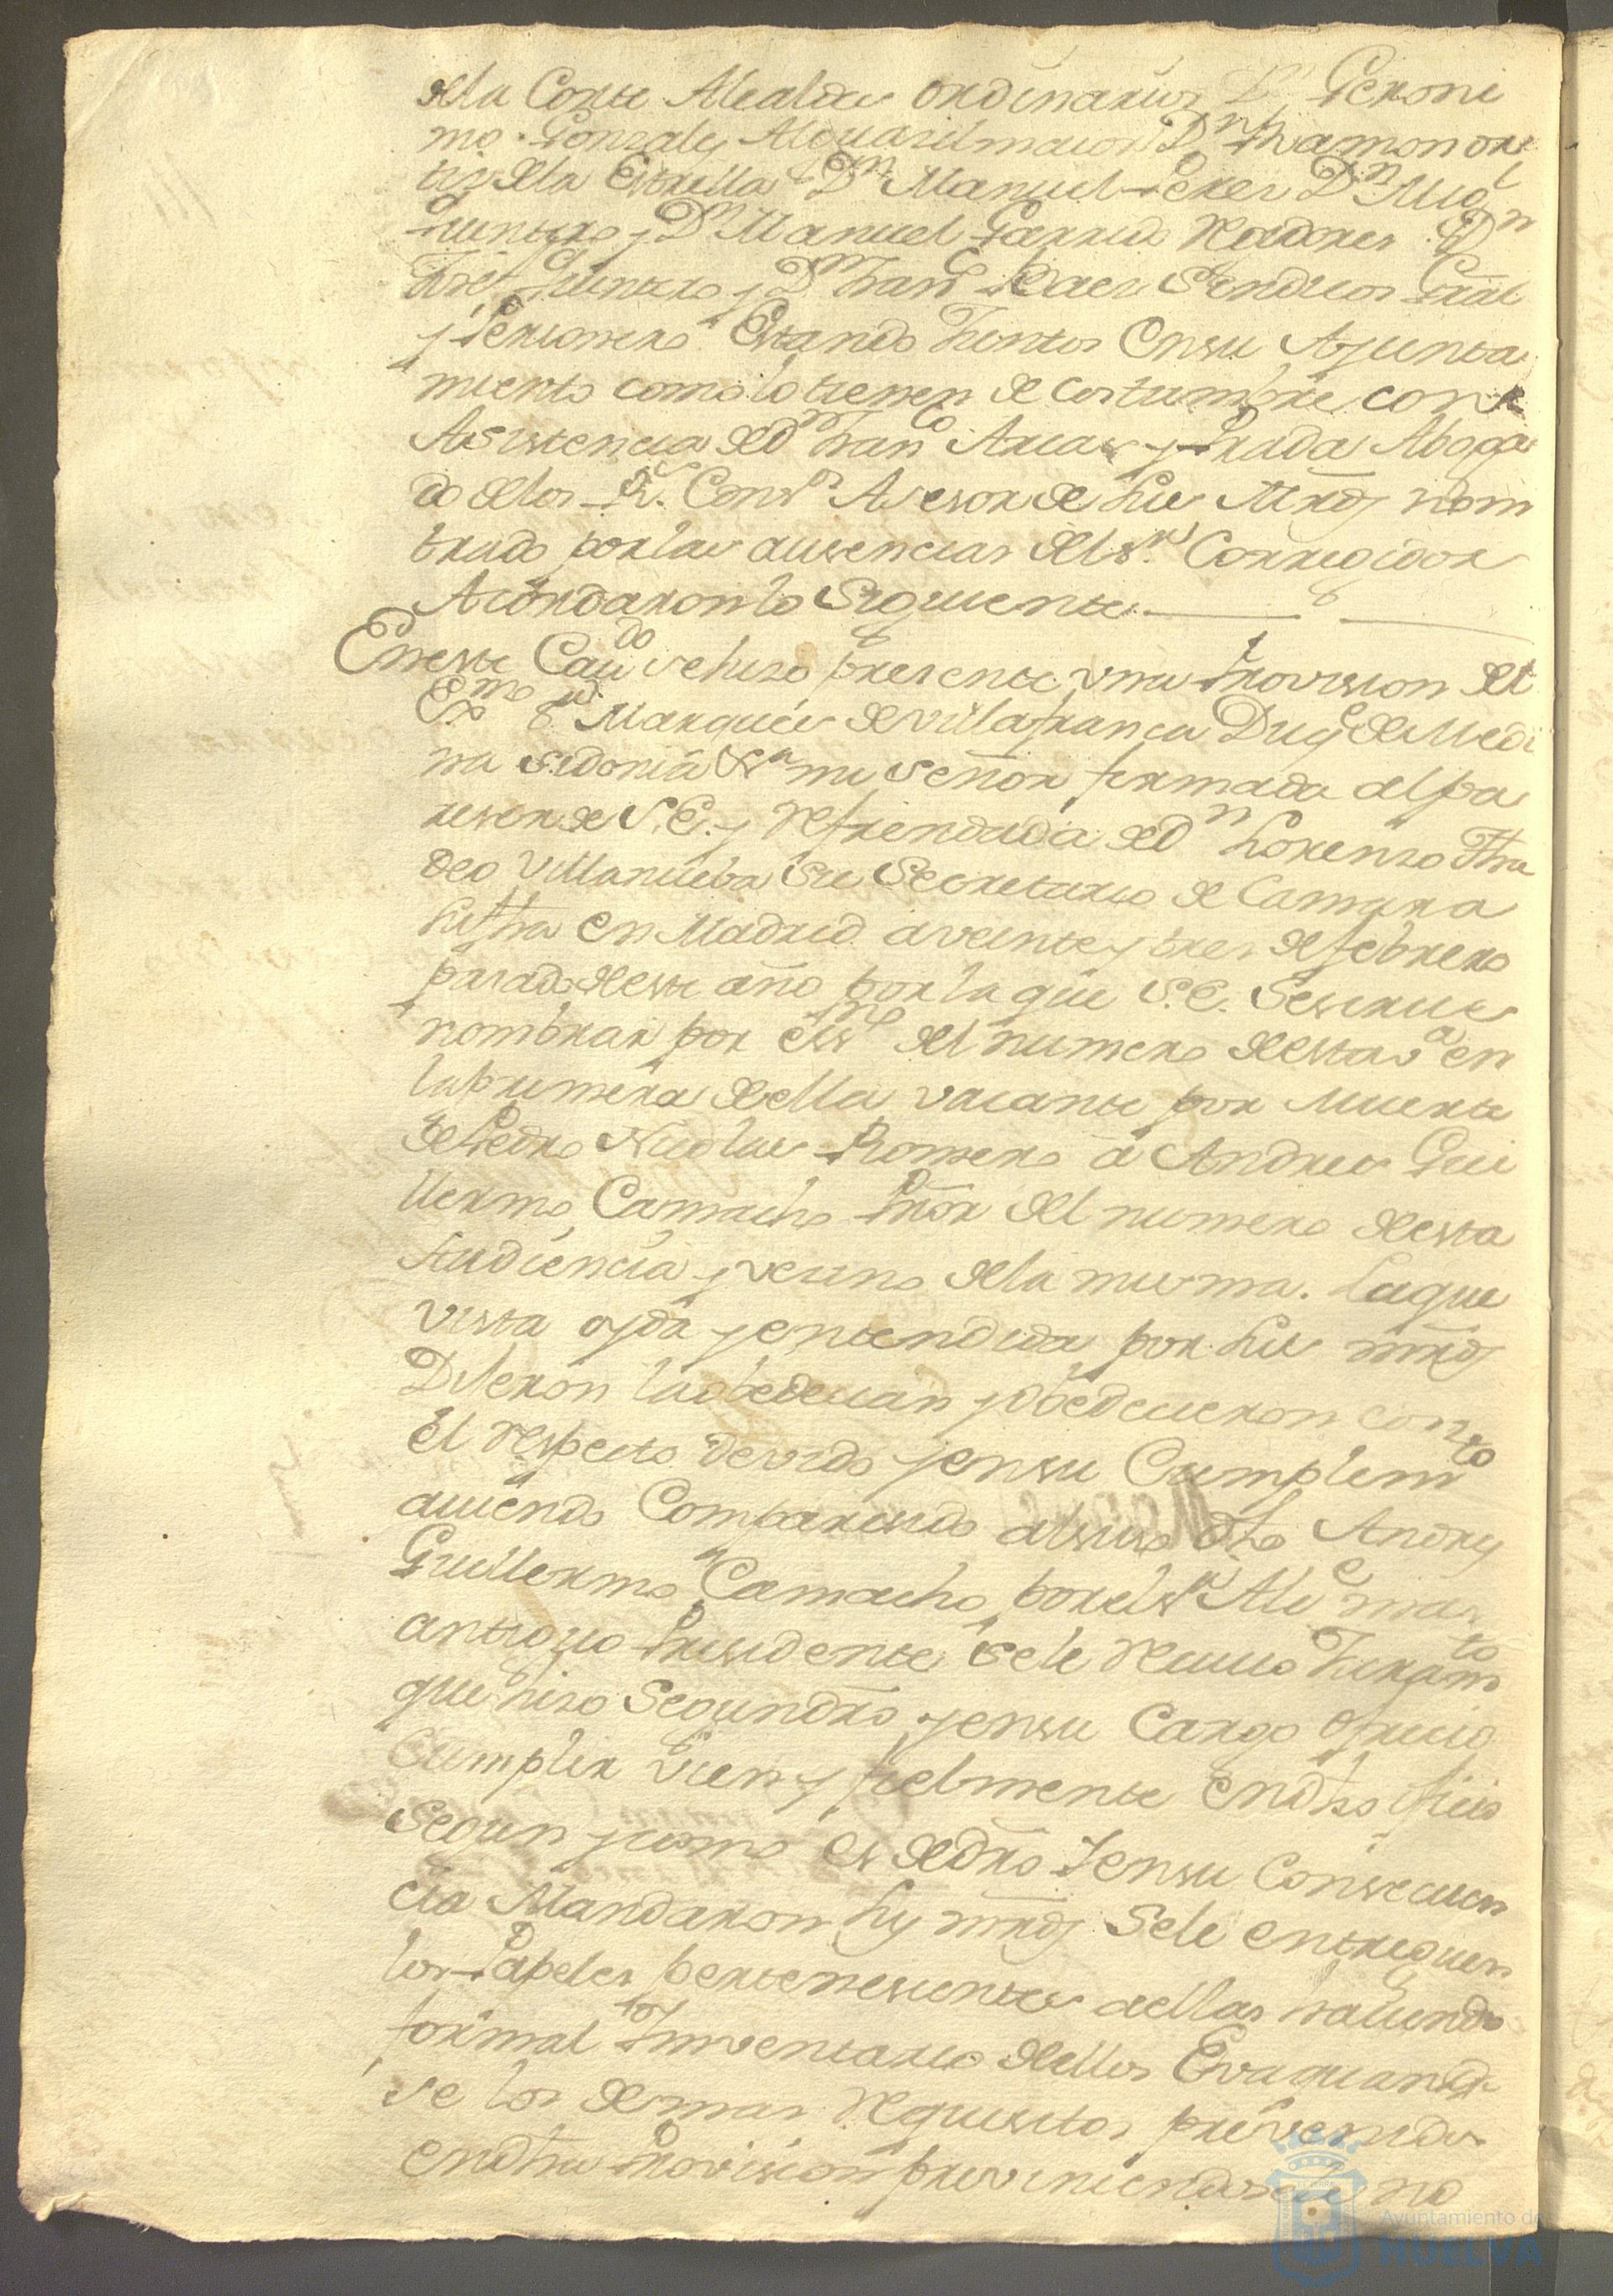 dela Corte Alcaldes ordinarios Dn Geroni
mo Gonzales Alguasil maior Dn Ramon or
tiz dela Estrella Dn Manuel Perez Dn Migl
Quintero y Dn Manuel Garrido Regidores Dn
Josef Quintero y Dn Franco Saez Sindicos Gral
y Personero Estando Juntos Ensu Ayunta
miento como lo tienen de costumbre con
Asistencia de Dn Franco Arias y Prada Aboga
do delos Rs. Consos Asesor de sus Mrds nom
brado por las ausencias del Sr. Corregidor
Acordaron lo Siguiente
Eneste Cavdo se hizo presente una Provision del
Exmo Sr Marques de Villafranca Duqe de Medi
na Sidonia Xa mi Señor firmada al pa
reser de S.E. y Refrendada de Dn Lorenzo Tha
deo Villanueba Su Secretario de Camara
su fha en Madrid a veinte y tres de febrero
pasado de este año por la que S.E. Sesirve
nombrar por essno del numero de esta va en
la primera de ella vacante por Muerte
de Pedro Nicolas Romero a Andres Gui
llermo Camacho Pror del numero de esta
Audiencia y vecino dela misma. Laque
vista oyda y entendida por sus mrds
Dijeron la obedecian y obedecieron con
el respecto devido y ensu Cumplimto
aviendo Comparesido a esto dho Andres
Guillermo Camacho, por el Sr Alce mas
antiguo Presidente se le Recivio Juramto
que hizo Segun dro y ensu Cargo ofrecio
Cumplir vien y fielmente en dho oficio
segun y como es de dro Y ensu Consecuen
cia Mandaron sus mrds Sele entreguen
los Papeles pertenesientes a ellas haciendo
formal Imventario de ellos Evaquando
se los demas Requisitos prevenidos
en dha Provision previniendosele no
Ayuntamiento de
HUELVA